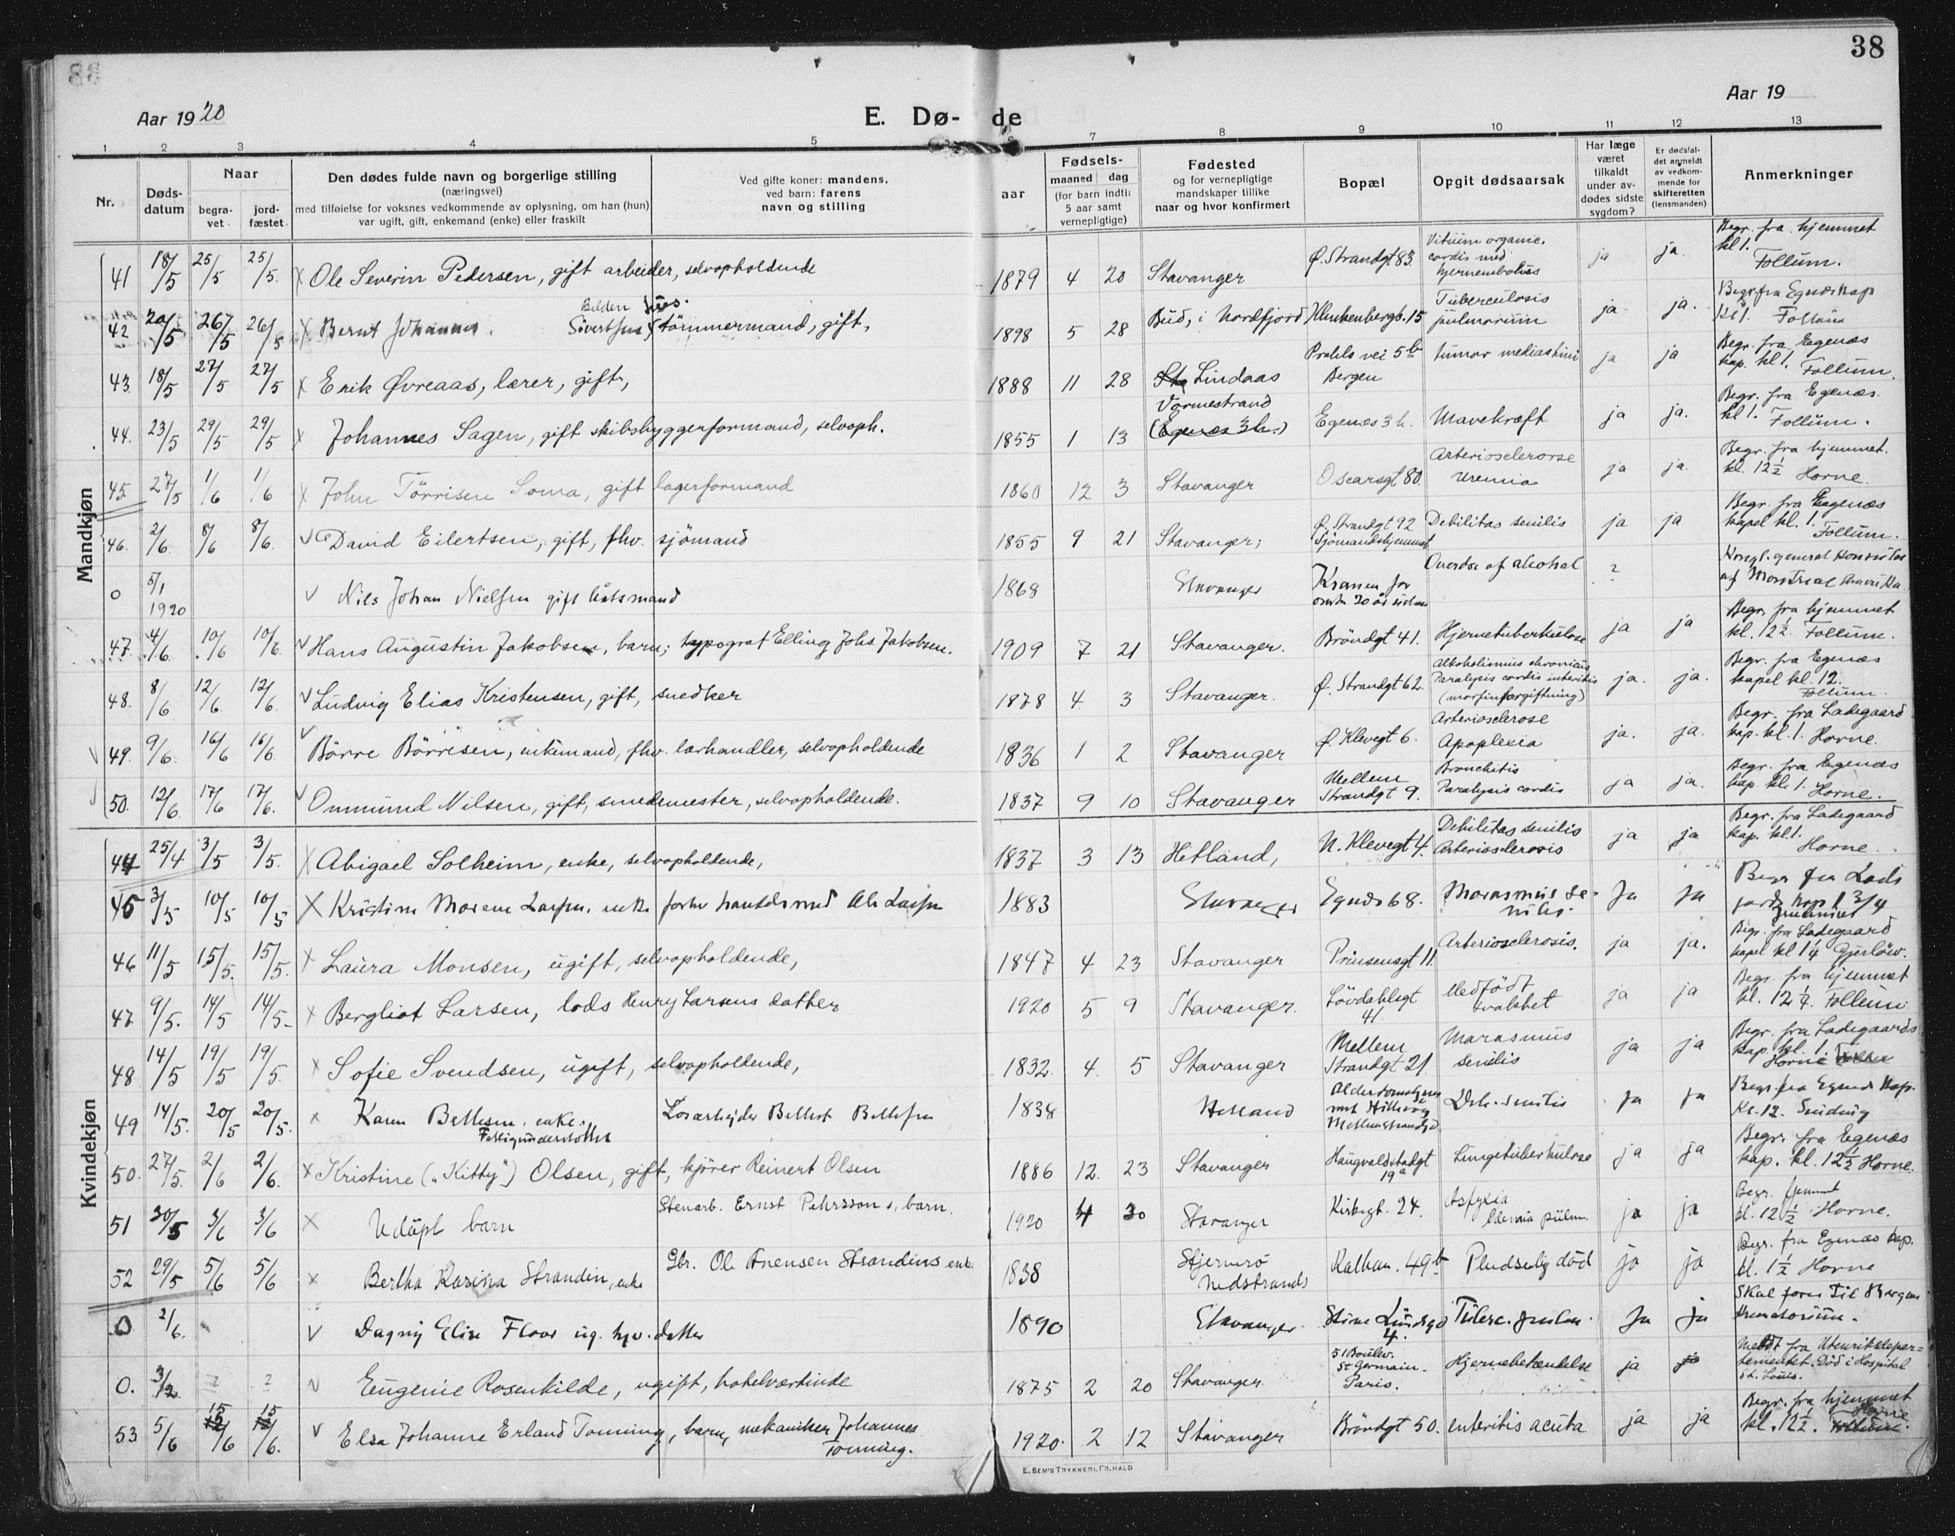 38
Aar 1920
E. Dø- de
Aar 19
1 2 3 4 5 7 8 9 10 11 12 13
Nr.
Døds-datum
Naar
begra-vet
jord-fæstet
Den dødes fulde navn og borgerlige stilling
(næringsvei)
med tilføielse for voksnes vedkommende av oplysning, om han (hun)
var ugift, gift, enkemand (enke) eller fraskilt
Ved gifte koner: mandens,
ved barn: farens
navn og stilling
Fødsels-
aar maaned dag
(for barn indtil
5 aar samt
vernepligtige)
Fødested
og for vernepligtige
mandskaper tillike
naar og hvor konfirmert
Bopæl
Opgit dødsaarsak
Har læge
været
tilkaldt
under av-
dødes sidste
sygdom?
Er dødsfal-
det anmeldt
av vedkom-
mende for
skifteretten
(lensmanden)
Anmerkninger
Mandkjøn
41 18/5 25/5 25/5 X Ole Severin Pedersen, gift arbeider, selvopholdende 1879 4 20 Stavanger Ø. Strandgt 83. Vitium organic. cordis med hjerneembolus ja ja. Begr. fra hjemmet kl 1. Follum.
42 20/5 26/5 26/5 X Bernt Johannes Sivertsen, tømmermand, gift, 1898 5 28 Bud, i Nordfjord Blenkenbergb. 15 Tuberculosis pulmonum ja ja. Begr. fra Egenæs kap kl 1. Follum
43. 18/5 27/5 27/5 X Erik Øvreaas, lærer, gift, 1888 11 28 Lindaas Prahls vei 5b Bergen tumor mediastini ja ja Begr. fra Egenæs kap. kl 1. Follum.
44. 23/5 29/5 29/5 X Johannes Sagen, gift skibsbyggerformand, selvoph. 1855 1 13 Vormestrand (Egenes 3 h.) Egenæs 3 h. Mavekræft ja ja. Begr. fra Egenæs. kl 1. Follum.
45. 27/5 1/6 1/6 X John Tørrisen Soma, gift lagerformand 1860 12 3 Stavanger Oscarsgt 80. Arteriosclerose Uremia ja ja. Begr. fra hjemmet. kl. 12½ Horne.
46. 2/6 8/6 8/6. V David Eilertsen, gift, fhv. sjömand 1855 9 21 Stavanger; Ø. Strandgt 92 Sjömandshjemmet Debilitas senilis ja ja Begr. fra Egenæs kapel kl. 1. Follum.
0 5/1 1920 V Nils Johan Nielsen gift båtsmand 1868 Stavanger Overdose af alcohol ? af Montreal
47. 4/6. 10/6 10/6. V Hans Augustin Jakobsen, barn; typograf Elling Johs Jakobsen. 1909 7 21 Stavanger. Bröndgt 41. Hjernetuberkulose ja ja Begr. fra hjemmet kl. 12½. Follum.
48. 8/6 12/6. 12/6. V Ludvig Elias Kristensen, gift, snedker 1878 4 3 Stavanger. Ø. Strandgt 62. Alkoholismus chronicus Paralysis cordis (morfinforgiftning) ja. ja. Begr. fra Egenæs kapel kl. 12. Follum.
49. 9/6. 16/6 16/6. V Börre Börresen, enkemand, fhv. lærhandler, selvopholdende 1836 1 2 Stavanger Ø. Klevegt 6. Arteriosclerose Apoplexia ja. ja. Begr. fra Ladegaard kap. kl. 1. Horne.
50. 12/6. 17/6 17/6. V Ommund Nilsen, gift, smedemester, selvopholdende. 1837 9 10 Stavanger Mellem Strandgt 9. Bronchitis Paralysis cordis ja ja. Begr. fra Egenæs kap kl. 1. Horne.
Kvindekjøn
44 25/4 3/5 3/5. X Abigael Solheim, enke, selvopholdende, 1837 3 13 Hetland, N. Klevegt 4. Debilitas senilis Arteriosclerosis ja ja Begr. fra Ladegaard kap. kl 1. Horne.
45 3/5 10/5 10/5 X Kristine Larsen, enke 1883 Stavanger Egnæs 68. Marasmus senilis. Ja Ja
46 11/5 15/5. 15/5. X Laura Monsen, ugift, selvopholdende, 1847 4 23 Stavanger Prinsensgt 11. Arteriosclerosis. ja ja. Begr. fra Ladegaard kapel kl 1¼ Gjerlöv.
47 9/5. 14/5 14/5- X Bergliot Larsen, lods Henry Larsens datter 1920 5 9 Stavanger. Lövdahlsgt 41 Medfödt svakhet ja ja Begr. fra hjemmet kl. 12¼. Follum.
48 14/5 19/5 19/5. X Sofie Svendsen, ugift, selvopholdende, 1832. 4. 5 Stavanger Mellem Strandgt 21. Marasmus senilis ja ja Begr. fra Ladegaards kap. kl. 1. Horne
49 14/5. 20/5 20/5. X Karen enke. Fattigunderstøttet Løsarbejder 1838 Hetland Deb. senilis Ja Ja Begr. fra Egenæs kap. Kl. 12. Sinding
50. 27/5. 2/6 2/6. X Kristine („Kitty") Olsen, gift, kjörer Reinert Olsen 1886 12. 23 Stavanger Haugvaldstadgt 19a Lungetuberkulose ja ja Begr. fra Egenæs kap. kl. 12½ Horne.
51 30/5 3/6 3/6 X Udöpt barn Stenarb. Ernst Pehrssons, barn. 1920 4 30 Stavanger Kirkegt. 24. Asfyxia Ødemia pulm. ja ja Begr. hjemmet kl. 12½ Horne.
52 29/5 5/6 5/6 X Bertha Karina Strandin, enke Gbr. Ole Strandins enke 1838 Stjernerö Nedstrands Kalhan. 49b Pludselig död ja ja Begr. fra Egenæs kap. kl. 1½ Horne
0 2/6. V Dagny Elise Floor ug. datter 1890 Stavanger. 4. Tuberc. pulm. Ja Ja Skal føres til Bergens Krematorium.
0. 3/2. ? ? V Eugenie Rosenkilde, ugift, hotelværtinde 1875 2 20 Stavanger 51 Boulev. St Germain. Paris. Hjernebetændelse ja ja Meldt fra Utenriksdepar= tementet. Död i Hospital St. Louis.
53 5/6 15/6 15/6. V Elsa Johanne Erland Tonning, barn, mekaniker Johannes Tonning. 1920. 2 12 Stavanger Bröndgt 50. enteritis acuta ja ja Begr. fra hjemmet kl. 12½. Horne Follum.
E. SEM'S TRYKKERI, FR.HALD